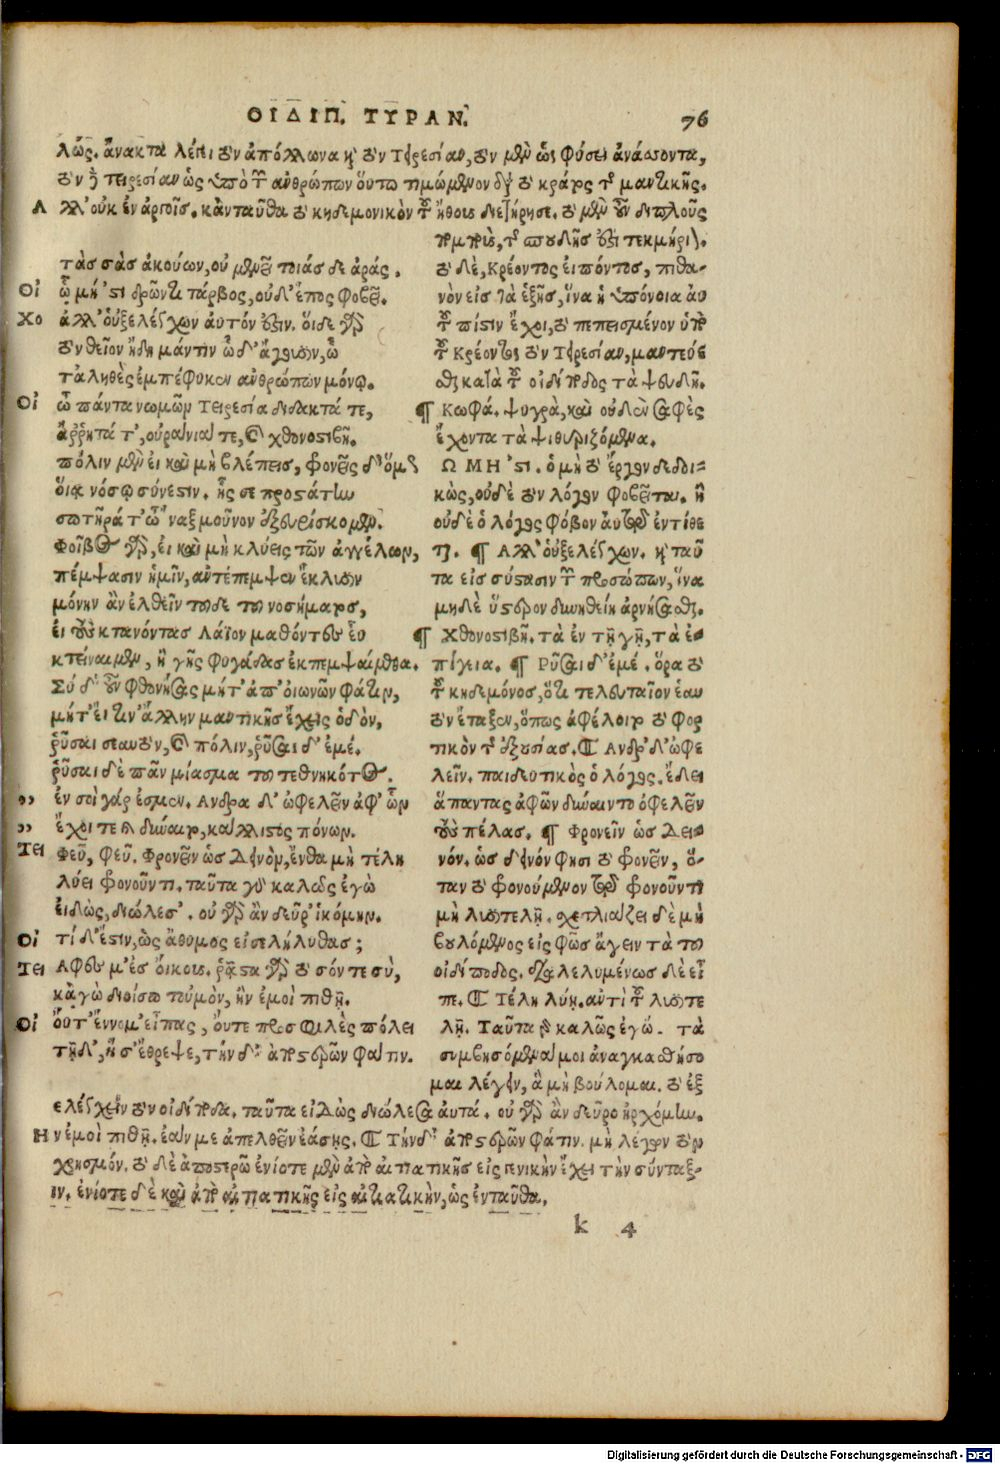 ΟΙΔΙΠ. ΤΥΡΑΝ. 76
λῶς. ἄνακτα λέγει τὸν ἀπόλλωνα καὶ τὸν Τειρεσίαν, τὸν μὲν ὡς φύσει ἀνάσσοντα,
τὸν δὲ τειρεσίαν ὡς ὑπὸ τῶν ἀνθρώπων οὕτω τιμώμενον διὰ τὸ κράτος τῆς μαντικῆς.
Αλλ' οὐκ ἐν ἀργοῖς. κἀνταῦθα τὸ κηδεμονικὸν τοῦ ἤθους διετήρησε. τὸ μὲν οὖν διπλοῦς
τὰς σὰς ἀκούων, οὐ μενεῖ τοιάσδε ἀράς.
Οἰ ᾧ μή 'στι δρῶντι τάρβος, οὐδ' ἔπος φοβεῖ.
Χο ἀλλ' οὑξελέγχων αὐτόν ἐστιν. οἵδε γὰρ
τὸν θεῖον ἤδη μάντιν ὧδ' ἄγουσιν, ᾧ
τἀληθὲς ἐμπέφυκεν ἀνθρώπων μόνῳ.
Οἰ ὦ πάντα νωμῶν Τειρεσία διδακτά τε,
ἄρρητά τ', οὐράνιά τε, καὶ χθονοστιβῆ.
πόλιν μὲν εἰ καὶ μὴ βλέπεις, φρονεῖς δ' ὅμως
οἵᾳ νόσῳ σύνεστιν. ἧς σε προστάτην
σωτῆρά τ' ὦ 'ναξ μοῦνον ἐξευρίσκομεν.
Φοῖβος γὰρ, εἰ καὶ μὴ κλύεις τῶν ἀγγέλων,
πέμψασιν ἡμῖν, ἀντέπεμψεν ἔκλυσιν
μόνην ἂν ἐλθεῖν τοῦδε τοῦ νοσήματος,
εἰ τοὺς κτανόντας Λάϊον μαθόντες εὖ
κτείναιμεν, ἢ γῆς φυγάδας ἐκπεμψαίμεθα.
Σύ δ' οὖν φθονήσας μήτ' ἀπ' οἰωνῶν φάτιν,
μήτ' εἴ τιν' ἄλλην μαντικῆς ἔχεις ὁδὸν,
ῥῦσαι σεαυτὸν, καὶ πόλιν, ῥῦσαι δ' ἐμέ.
ῥῦσαι δὲ πᾶν μίασμα τοῦ τεθνηκότος.
,, ἐν σοὶ γάρ ἐσμεν. Ανδρα δ' ὠφελεῖν ἀφ' ὧν
,, ἔχοι τε καὶ δύναιτο, κάλλιστος πόνων.
Τει Φεῦ, φεῦ. Φρονεῖν ὡς δεινὸν, ἔνθα μὴ τέλη
λύει φρονοῦντι. ταῦτα γὰρ καλῶς ἐγὼ
εἰδὼς, διώλεσ'. οὐ γὰρ ἂν δεῦρ' ἱκόμην.
Οἰ τί δ' ἔστιν, ὡς ἄθυμος εἰσελήλυθας;
Τει Αφες μ' ἐς οἴκους. ῥᾷστα γὰρ τὸ σόν τε σὺ,
κἀγὼ διοίσω τοὐμὸν, ἢν ἐμοὶ πίθῃ.
Οἰ οὔτ' ἔννομ' εἶπας, οὔτε προσφιλὲς πόλει
τῇδ', ἥ σ' ἔθρεψε, τήνδ' ἀποστερῶν φάτιν.
τὸ δὲ, Κρέοντος εἰπόντος, πιθα-
νὸν εἰς τὰ ἑξῆς, ἵνα ἡ ὑπόνοια αὐ
τοῦ πίστιν ἔχοι, τὸ πεπεισμένον ὑπὸ
τοῦ Κρέοντος τὸν Τειρεσίαν, μαντεύε
σθαι κατὰ τοῦ οἰδίποδος τὰ ψευδῆ.
¶ Κωφά. ψυχρὰ, καὶ οὐδὲν σαφὲς
ἔχοντα τὰ ψιθυριζόμενα.
Ω ΜΗ 'στι. ὁ μὴ τὸ ἔργον δεδοι-
κὼς, οὐδὲ τὸν λόγον φοβεῖται. ἢ
οὐδὲ ὁ λόγος φόβον αὐτῷ ἐντίθε
ται. ¶ Αλλ' οὑξελέγχων. καὶ ταῦ
τα εἰς σύστασιν τῶν προσώπων, ἵνα
μηδὲ ὕστερον δυνηθείη ἀρνήσασθαι.
¶ Χθονοστιβῆ. τὰ ἐν τῇ γῇ, τὰ ἐ-
πίγεια. ¶ Ρῦσαι δ' ἐμέ. ὅρα τὸ
τοῦ κηδεμόνος, ὅτι τελευταῖον ἑαυ
τὸν ἔταξεν, ὅπως ἀφέλοιτο τὸ φορ
τικὸν τῆς ἐξουσίας. ¶ Ανδρ' δ' ὠφε
λεῖν. παιδευτικὸς ὁ λόγος. ἔδει
ἅπαντας ἀφ' ὧν δύναιντο ὀφελεῖν
τοὺς πέλας. ¶ Φρονεῖν ὡς δει-
νόν. ὡς δεινόν φησι τὸ φρονεῖν, ὅ-
ταν τὸ φρονούμενον τῷ φρονοῦντι
μὴ λυσιτελῇ. σχετλιάζει δὲ μὴ
βουλόμενος εἰς φῶς ἄγειν τὰ τοῦ
οἰδίποδος. διαλελυμένως δὲ εἶ
πε. ¶ Τέλη λύῃ. ἀντὶ τοῦ λυσιτε
λῇ. Ταῦτα γὰρ καλῶς ἐγώ. τὰ
συμβησόμενά μοι ἀναγκασθήσο
μαι λέγειν, ἃ μὴ βούλομαι. τὸ ἐξ
ελέγχειν τὸν οἰδίποδα. ταῦτα εἰδὼς διώλεσα αὐτά. οὐ γὰρ ἂν δεῦρο ἠρχόμην.
Ην ἐμοὶ πίθῃ. ἐάν με ἀπελθεῖν ἐάσῃς. ¶ Τήνδ' ἀποστερῶν φάτιν. μὴ λέγων τὸν
χρησμόν. τὸ δὲ ἀποστερῶ ἐνίοτε μὲν ἀπὸ αἰτιατικῆς εἰς γενικὴν ἔχει τὴν σύνταξ-
ιν. ἐνίοτε δὲ καὶ ἀπὸ αἰτιατικῆς εἰς αἰτιατικὴν, ὡς ἐνταῦθα.
k 4
Digitalisierung gefördert durch die Deutsche Forschungsgemeinschaft - DFG